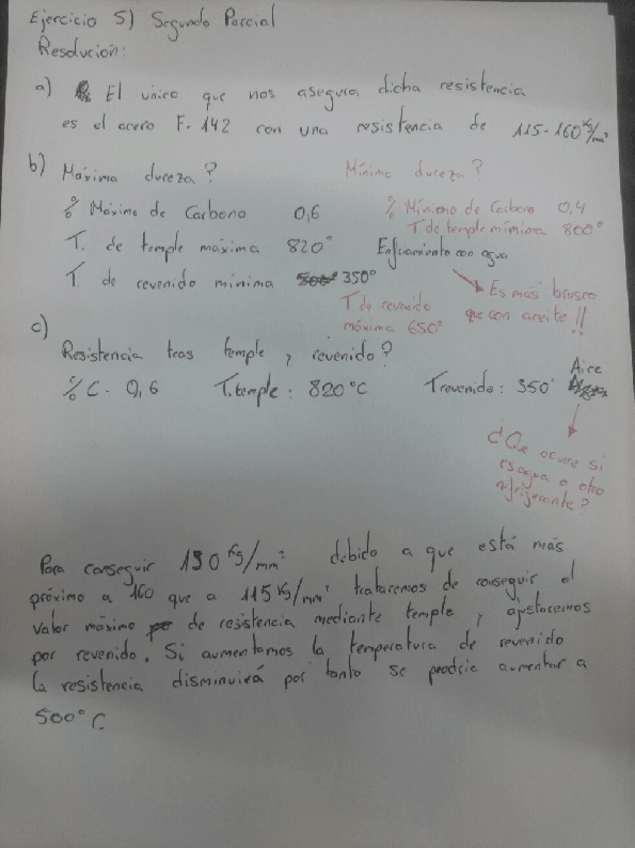 Ejercicio 5) Segundo Parcial
Resolución:
a) El único que nos asegura dicha resistencia
es el acero F-142 con una resistencia de 115-160 Kg/mm²
b) Máxima dureza?
% Máximo de Carbono 0,6
T. de temple máxima 820°
T. de revenido mínima 350°
Mínima dureza?
% Mínimo de Carbono 0,4
T de temple mínima 800°
Enfriamiento con agua
Es más brusco
que con aceite!!
T. de revenido
máxima 650°
c)
Resistencia tras temple y revenido?
% C - 0,6 T.temple: 820°C T revenido: 350° Aire
¿Que ocurre si
es agua o otro
refrigerante?
Para conseguir 150 Kg/mm² debido a que está más
próximo a 160 que a 115 Kg/mm² trataremos de conseguir el
valor máximo de resistencia mediante temple y ajustaremos
por revenido. Si aumentamos la temperatura de revenido
la resistencia disminuirá por tanto se podría aumentar a
500°C